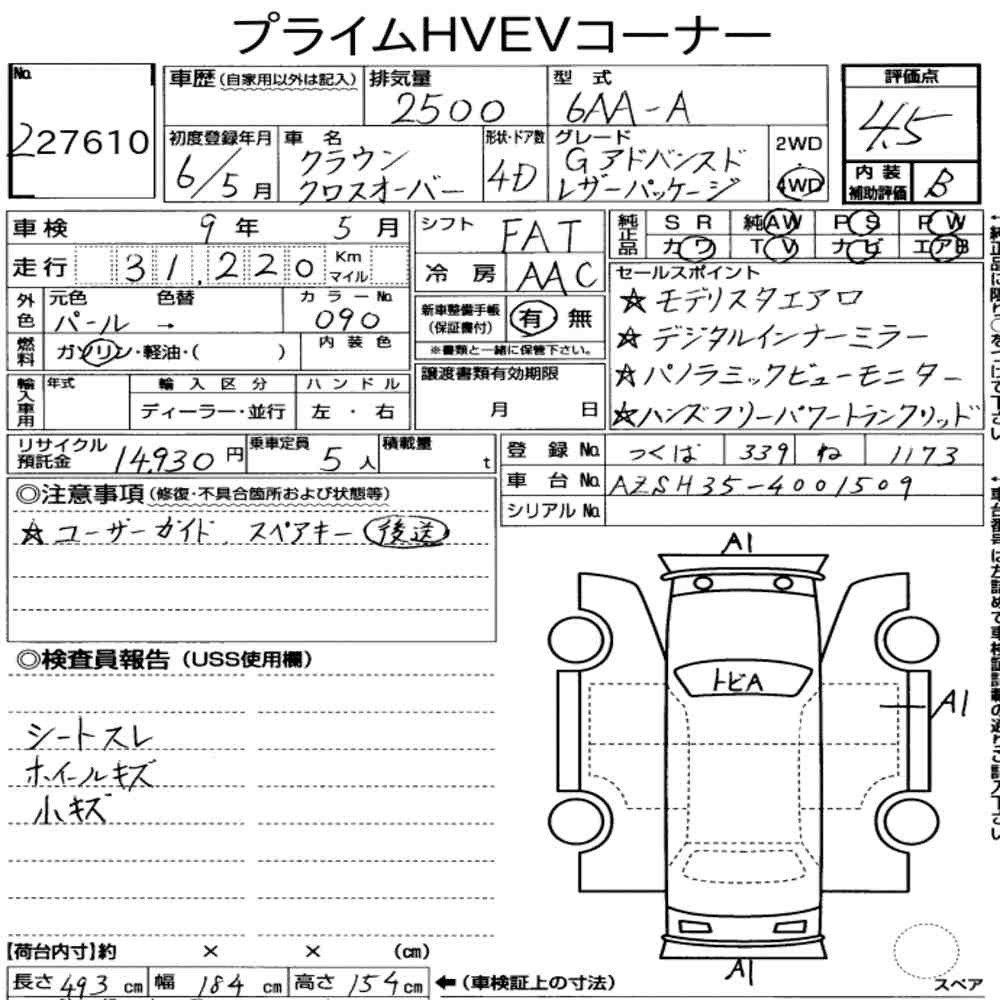 プライムHVEVコーナー
No. 227610
車歴 (自家用以外は記入)
排気量 2500
型式 6AA-A
評価点 4.5
初度登録年月 6/5月
車名 クラウン クロスオーバー
形状・ドア数 4D
グレード Gアドバンスド レザーパッケージ
2WD・4WD
内装補助評価 B
車検 9年 5月
シフト FAT
純正品 SR 純AW PS PW
カワ TV ナビ エアB
走行 31,220 Km マイル
冷房 AAC
セールスポイント
☆モデリスタエアロ
☆デジタルインナーミラー
☆パノラミックビューモニター
☆ハンズフリーパワートランクリッド
外色 元色 色替 カラーNo.
パール → 090
新車整備手帳(保証書付) 有 無
※書類と一緒に保管下さい。
燃料 ガソリン・軽油・( ) 内装色
譲渡書類有効期限
月 日
輸入車用 年式 輸入区分 ハンドル
ディーラー・並行 左・右
リサイクル預託金 14,930円
乗車定員 5人
積載量 t
登録No. つくば 339 ね 1173
車台No. AZSH35-4001509
シリアルNo.
◎注意事項(修復・不具合箇所および状態等)
☆ユーザーガイド、スペアキー 後送
◎検査員報告(USS使用欄)
シートスレ
ホイールキズ
小キズ
A1
トビA
A1
A1
スペア
【荷台内寸】約 × × (cm)
長さ 493 cm 幅 184 cm 高さ 154 cm
←(車検証上の寸法)